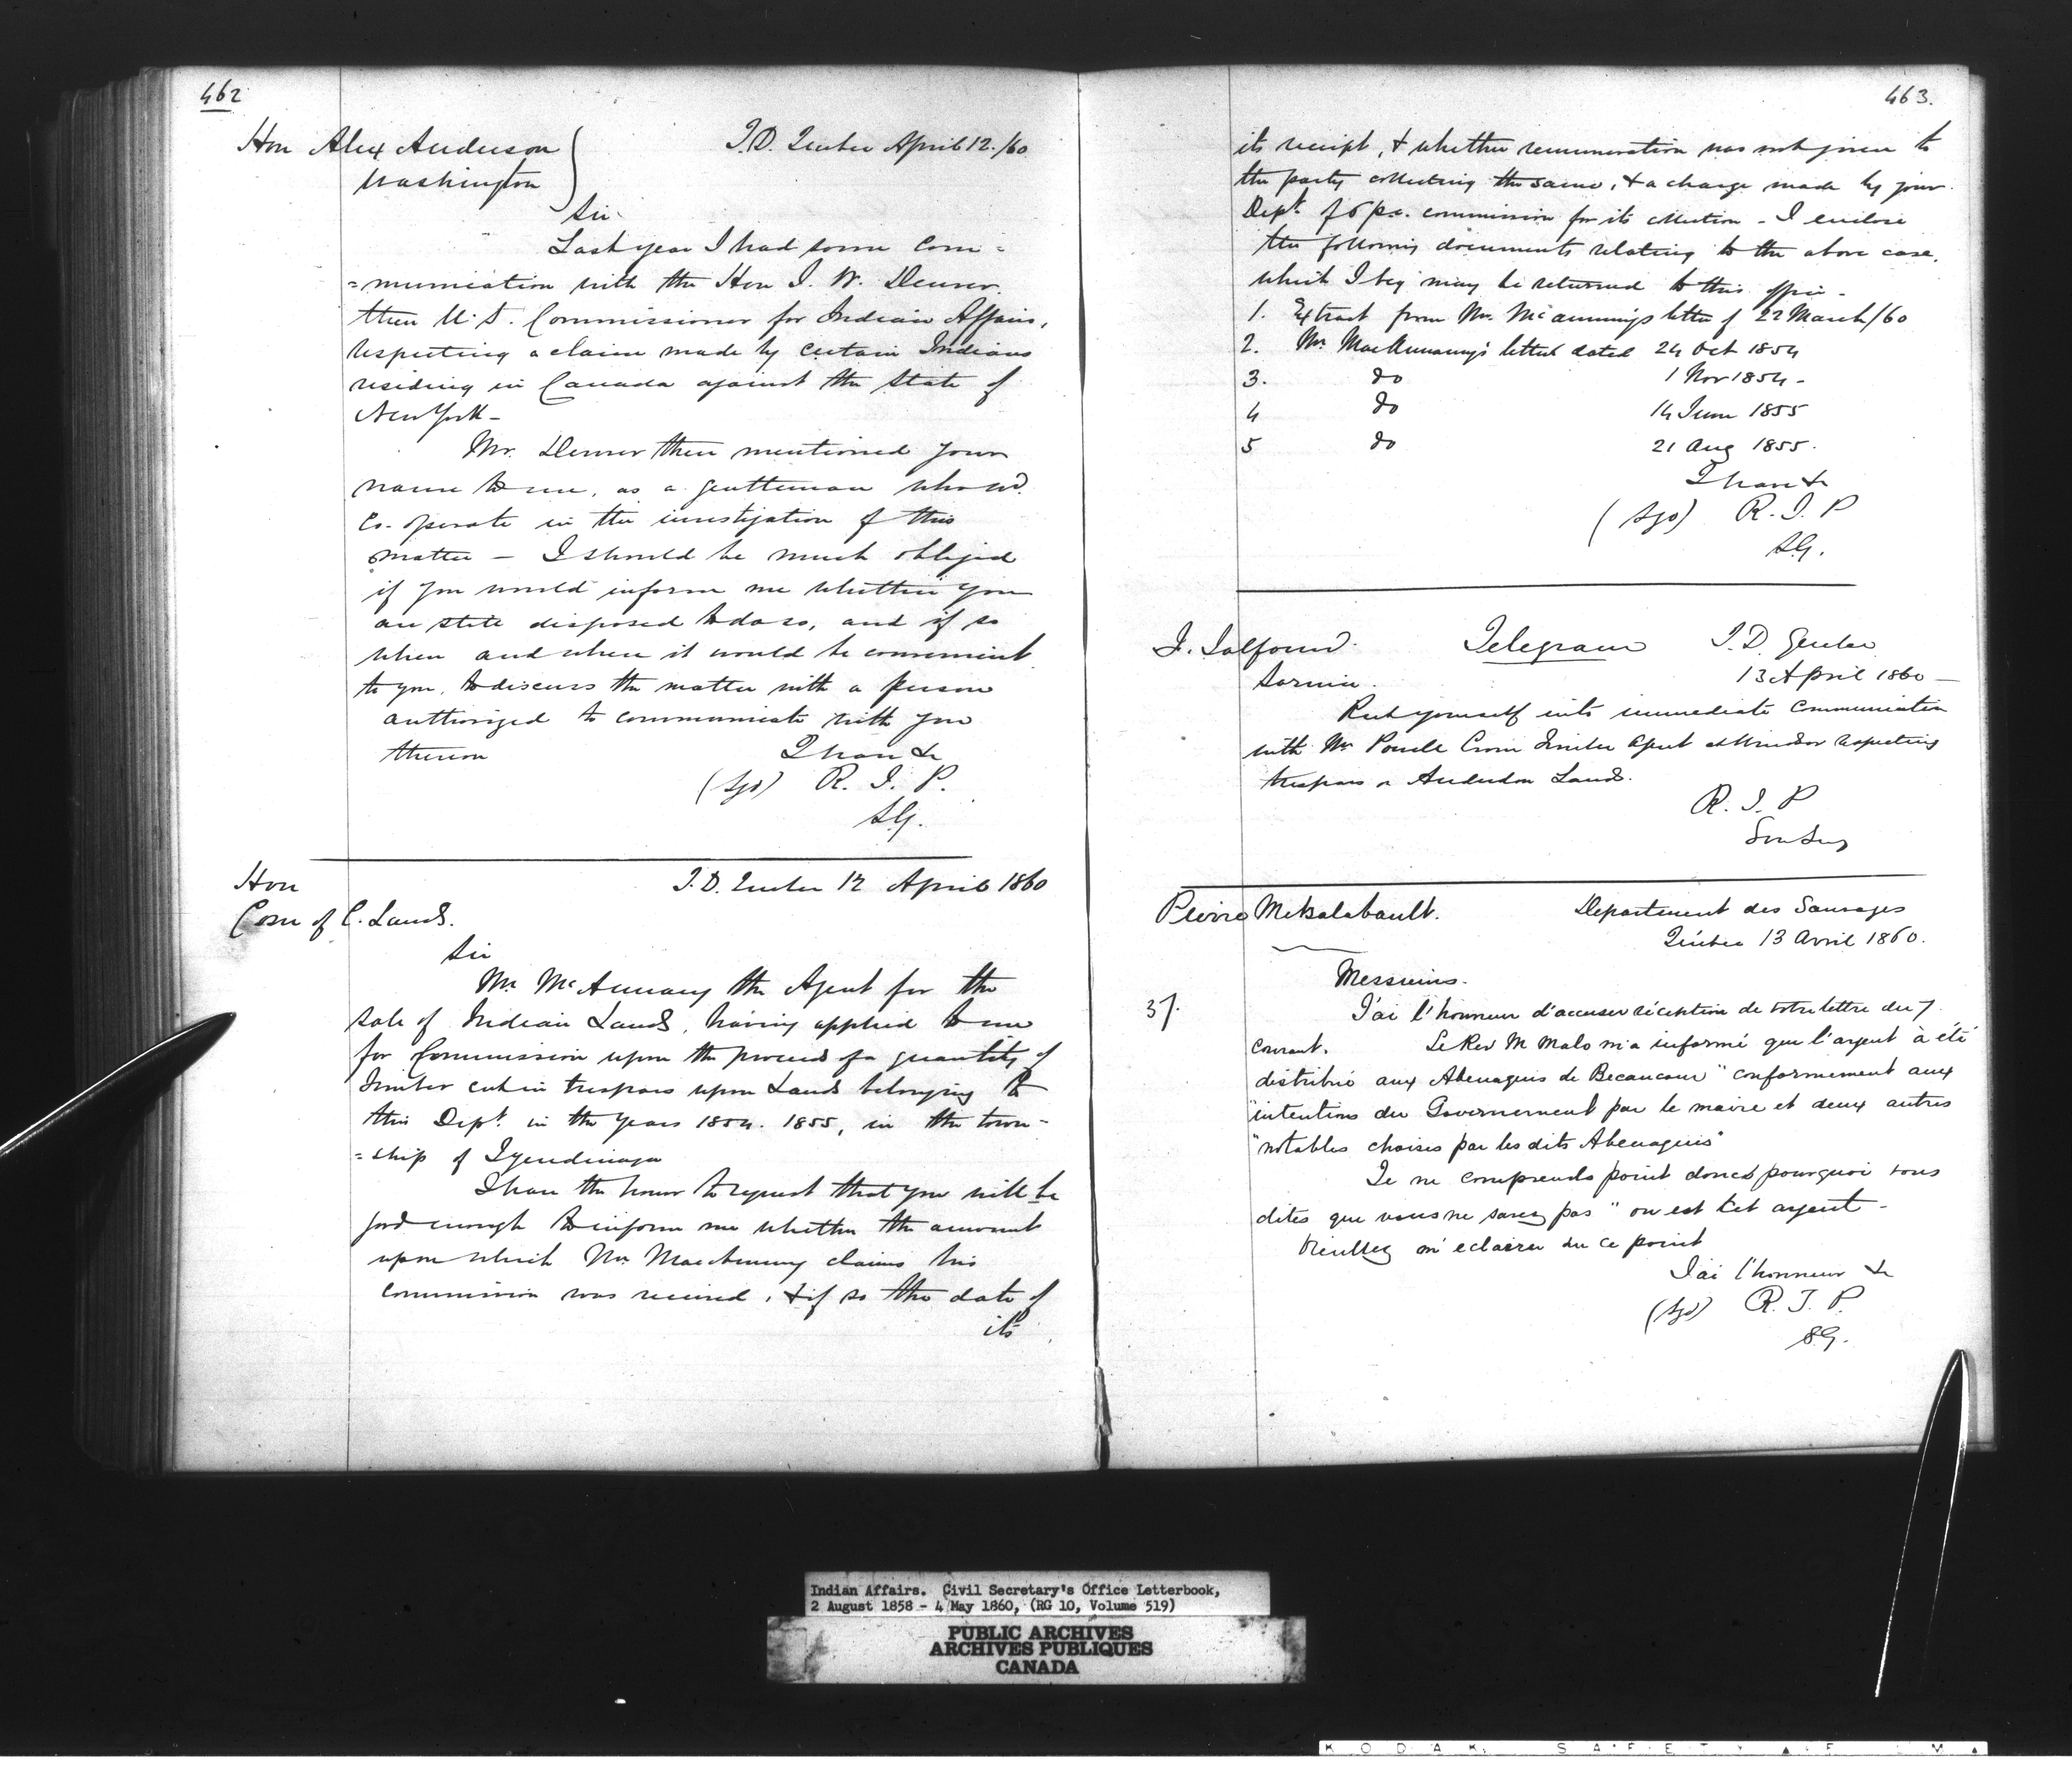 462
Hon Alex Anderson
Washington
I.D. Quebec April 12./60
Sir
Last year I had some com=
=munication with the Hon J. W. Denver
then U.S. Commissioner for Indian Affairs,
respecting a claim made by certain Indians
residing in Canada against the State of
New York -
Mr. Denver then mentioned your
name to me, as a gentleman who wd.
co-operate in the investigation of this
matter - I should be much obliged
if you would inform me whether you
are still disposed to do so, and if so
when and where it would be convenient
to you, to discuss the matter with a person
authorized to communicate with you
thereon
I have &c
(Sgd) R. J. P.
S.G.
Hon
Com of C. Lands.
I.D. Quebec 12 April 1860
Sir
Mr. McAnnany the Agent for the
sale of Indian Lands, having applied to me
for Commission upon the proceeds of a quantity of
timber cut in trespass upon Lands belonging to
this Dept. in the years 1854. 1855, in the town-
=ship of Tyendinaga
I have the honor to request that you will be
good enough to inform me whether the amount
upon which Mr. MacAnnany claims his
commission was received, & if so the date of
its
463.
its receipt, & whether remuneration was not given to
the party collecting the same, & a charge made by your
Dept. of 6 p.c. commission for its collection - I enclose
the following documents relating to the above case,
which I beg may be returned to this office -
1. Extract from Mr. McAnnany's letter of 22 March/60
2. Mr MacAnnany's letter dated 24 Oct 1854
3. do 1 Nov 1854 -
4 do 14 June 1855
5 do 21 Aug 1855.
I have &c
(Sgd) R. J. P
S.G.
F. Talfourd.
Sarnia.
Telegram
I.D. Quebec
13 April 1860 -
Put yourself into immediate communication
with Mr Powell Crown Timber Agent at Windsor respecting
trespass on Anderdon Lands.
R. J. P
Pierre Metsalabault.
Departement des Sauvages
Québec 13 Avril 1860.
Messieurs.
37.
J'ai l'honneur d'accuser réception de votre lettre du 7
courant. Le Rev M Malo m'a informé que l'argent à été
distribué aux Abenaquis de Becancour "conformement aux
"intentions du Gouvernement par le maire et deux autres
"notables choisis par les dits Abenaquis"
Je ne comprends point donc pourquoi vous
dites que vous ne savez pas "ou est cet argent -
Veuillez m'eclairer sur ce point
J'ai l'honneur &c
(Sgd) R. J. P.
S.G.
Indian Affairs. Civil Secretary's Office Letterbook,
2 August 1858 - 4 May 1860, (RG 10, Volume 519)
PUBLIC ARCHIVES
ARCHIVES PUBLIQUES
CANADA
KODAK SAFETY